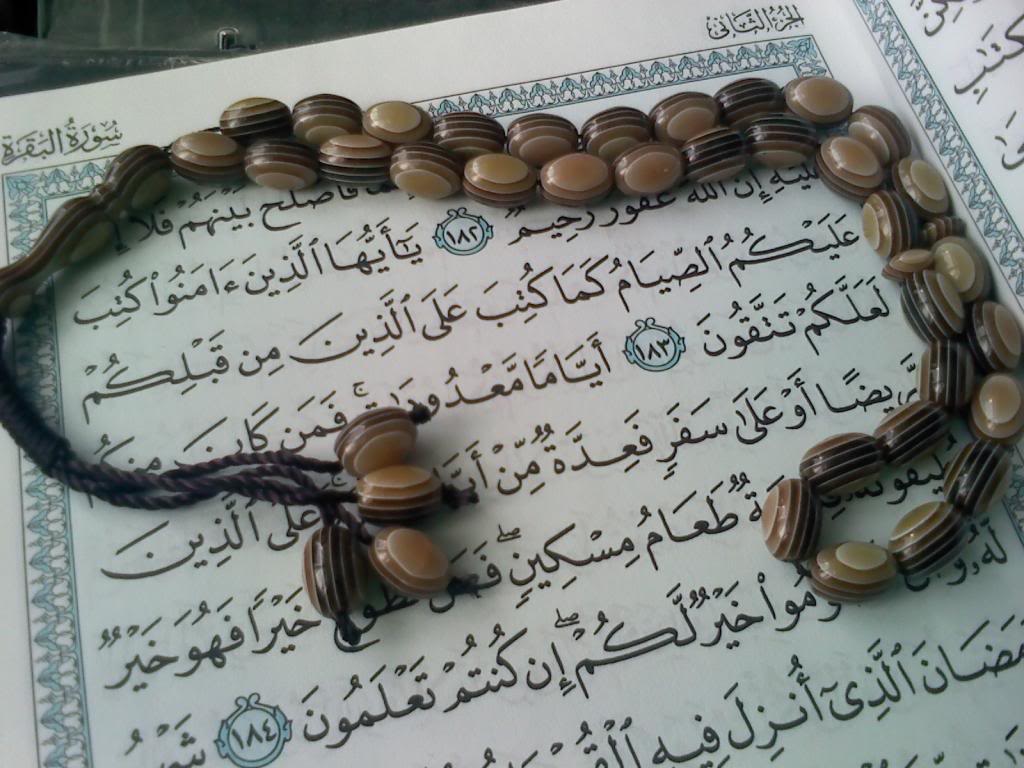 الجزء الثاني
سُورَةُ البَقَرَةِ
فَأَصْلَحَ بَيْنَهُمْ فَلَا
عَلَيْهِ إِنَّ ٱللَّهَ غَفُورٌ رَّحِيمٌ ١٨٢ يَٰٓأَيُّهَا ٱلَّذِينَ ءَامَنُوا۟ كُتِبَ
عَلَيْكُمُ ٱلصِّيَامُ كَمَا كُتِبَ عَلَى ٱلَّذِينَ مِن قَبْلِكُمْ
لَعَلَّكُمْ تَتَّقُونَ ١٨٣ أَيَّامًا مَّعْدُودَٰتٍ ۚ فَمَن كَانَ مِنكُم
مَّرِيضًا أَوْ عَلَىٰ سَفَرٍ فَعِدَّةٌ مِّنْ عَلَى ٱلَّذِينَ
طَعَامُ مِسْكِينٍ ۖ خَيْرًا فَهُوَ خَيْرٌ
لَّهُۥ خَيْرٌ لَّكُمْ ۖ إِن كُنتُمْ تَعْلَمُونَ ١٨٤ شَهْرُ
رَمَضَانَ ٱلَّذِىٓ أُنزِلَ فِيهِ